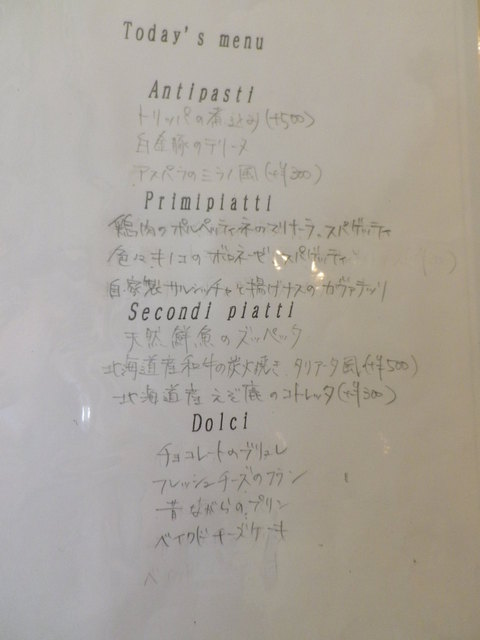 Today's menu
Antipasti
トリッパの煮込み(+500)
白金豚のテリーヌ
アスパラのミラノ風(+¥300)
Primipiatti
鶏肉のポルペッティーネのマリナーラ.スパゲッティ
色々キノコのボロネーゼ スパゲッティ
自家製サルシッチャと揚げナスのカヴァテッリ
Secondi piatti
天然鮮魚のズッペッタ
北海道産和牛の炭火焼き.タリアータ風(+¥500)
北海道産えぞ鹿のコトレッタ(+¥300)
Dolci
チョコレートのブリュレ
フレッシュチーズのフラン
昔ながらのプリン
ベイクドチーズケーキ